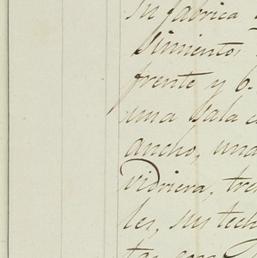 su fabrica
simiento,
frente y 6.
una sala
ancho, una
vidriera, tre
les, sus tech